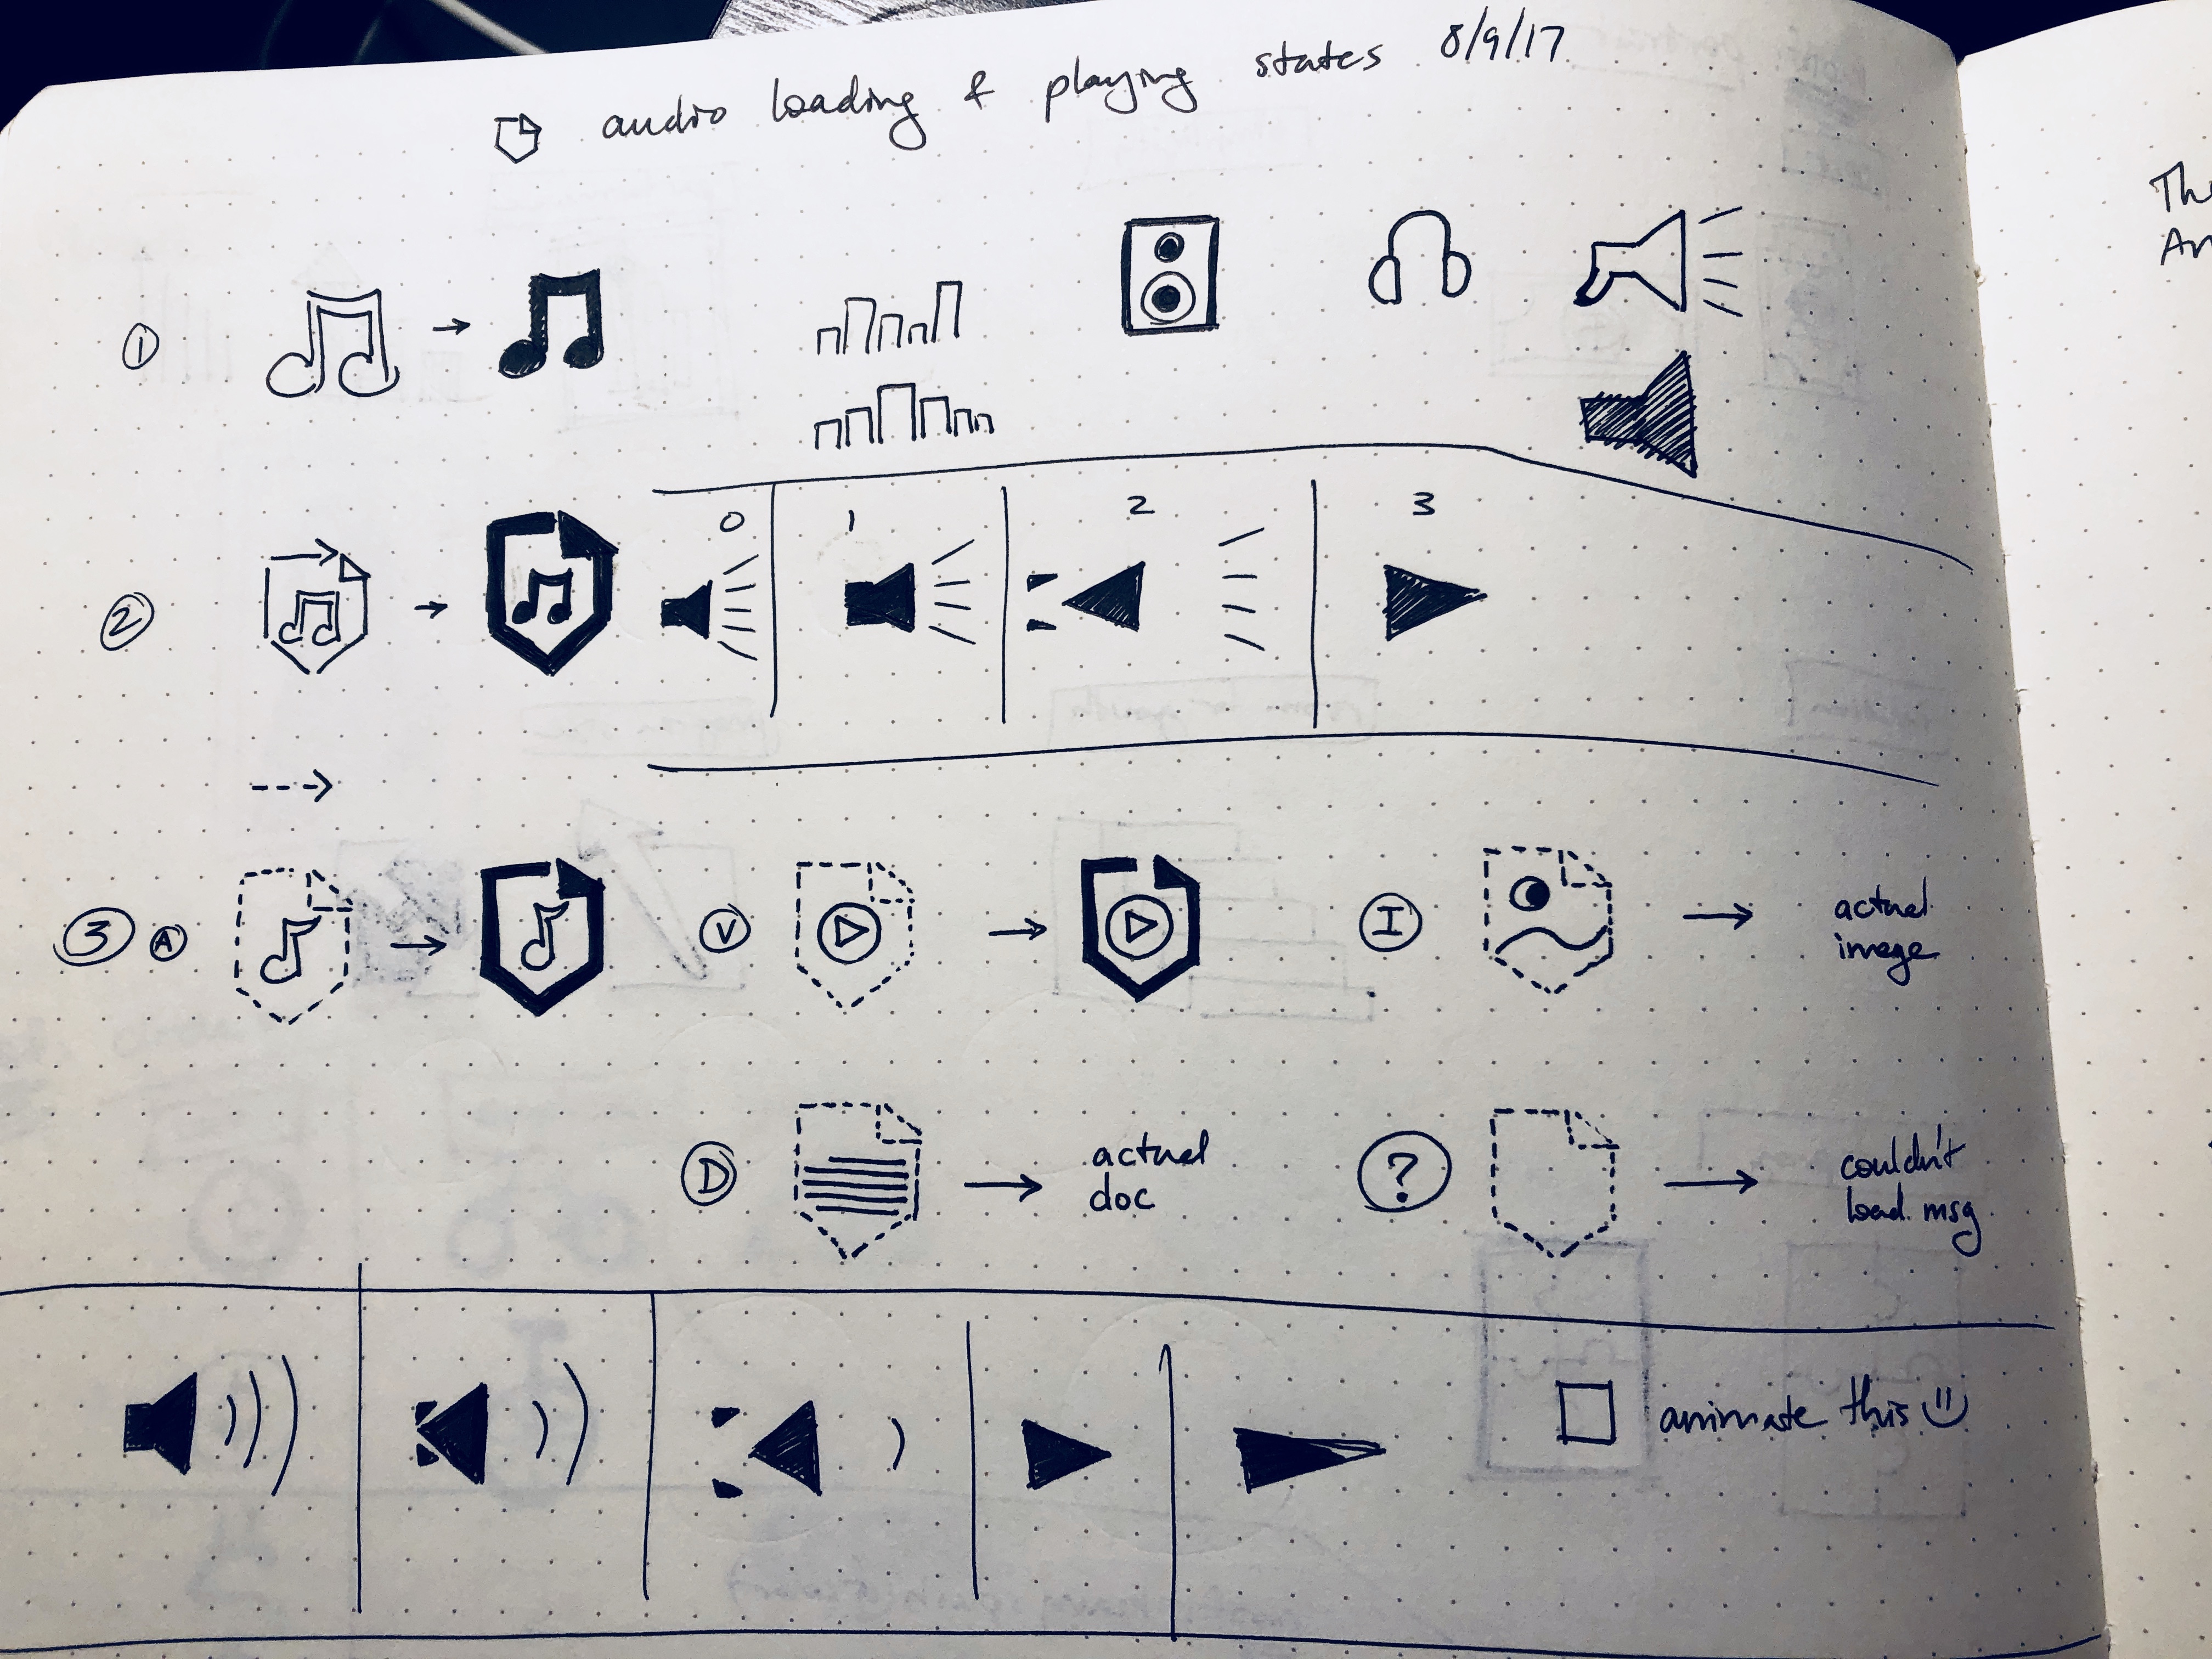 audio loading & playing states 8/9/17
1
2
0 1 2 3
3 A
V
I
actual
image
D
actual
doc
?
couldn't
load msg
animate this